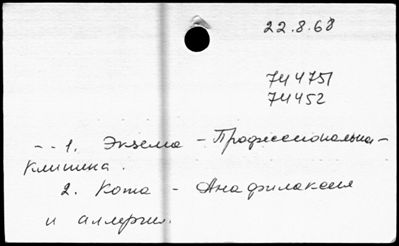 22.8.68
744751
74452
-- 1. Экзема - Профессиональна-
клиника.
2. Кожа - Анафилаксия
и аллергия.